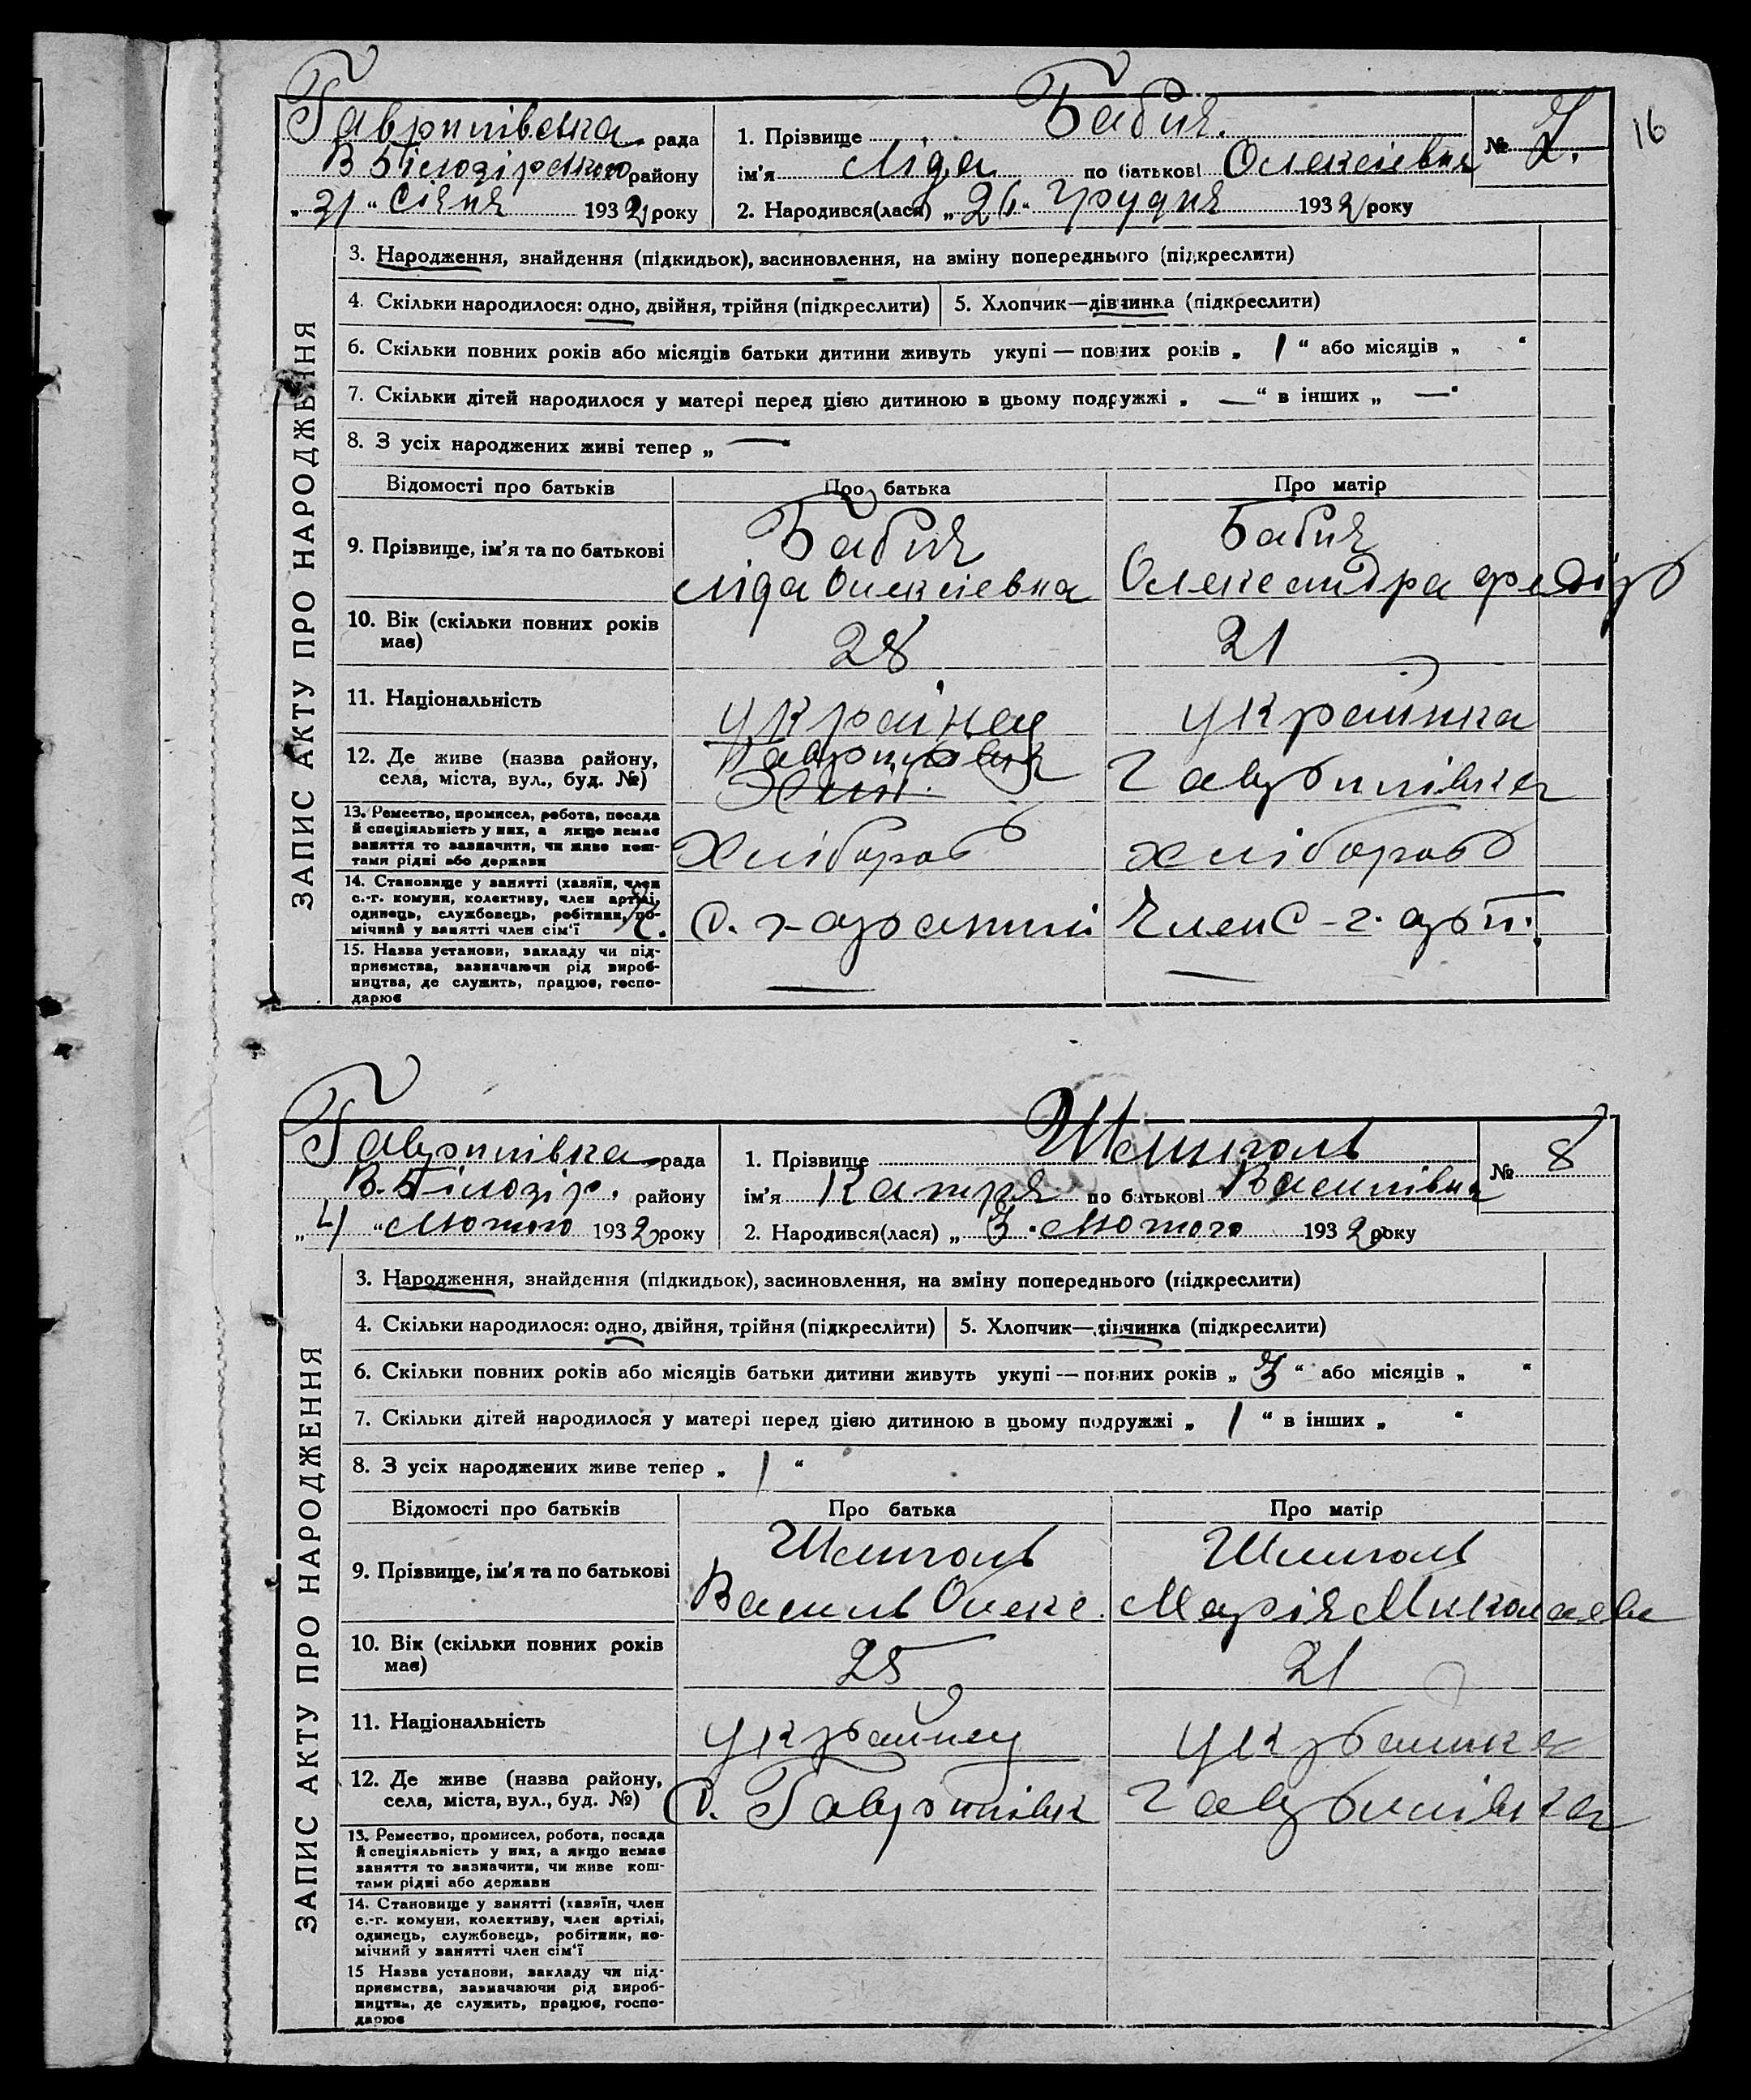 16
Гаврилівська рада
В Білозірського району
„31“ Січня 1932 року
1. Прізвище Бабич.
ім'я Ліда по батькові Олексієвна
№ 7.
2. Народився(лася) „26“ Грудня 1932 року
ЗАПИС АКТУ ПРО НАРОДЖЕННЯ
3. Народження, знайдення (підкидьок), засиновлення, на зміну попереднього (підкреслити)
4. Скільки народилося: одно, двійня, трійня (підкреслити) 5. Хлопчик—дівчинка (підкреслити)
6. Скільки повних років або місяців батьки дитини живуть укупі — повних років „ 1 “ або місяців „ “
7. Скільки дітей народилося у матері перед цією дитиною в цьому подружжі „ — “ в інших „ — “
8. З усіх народжених живі тепер „ —
Відомості про батьків Про батька Про матір
9. Прізвище, ім'я та по батькові
Бабич
Ліда Олексіевна
Бабич
Олександра Федір
10. Вік (скільки повних років має)
28 21
11. Національність
українец українка
12. Де живе (назва району, села, міста, вул., буд. №)
Гаврилівка
Гаврилівка
13. Ремество, промисел, робота, посада
й спеціяльність у них, а якщо немає
заняття то зазначити, чи живе кош-
тами рідні або держави
Хлібороб хлібороб
14. Становище у занятті (хазяїн, член
с.-г. комуни, колективу, член артілі,
одинець, службовець, робітник, по-
мічний у занятті член сім'ї
Ч. С. г-артіли Член С-г. арт.
15. Назва установи, закладу чи під-
приємства, зазначаючи рід вироб-
ництва, де служить, працює, госпо-
дарює
— —
Гаврилівка рада
В. Білозір. району
„4“ Лютого 1932 року
1. Прізвище Шмиголь
ім'я Катря по батькові Василівна
№ 8
2. Народився(лася) „3“ Лютого 1932 року
ЗАПИС АКТУ ПРО НАРОДЖЕННЯ
3. Народження, знайдення (підкидьок), засиновлення, на зміну попереднього (підкреслити)
4. Скільки народилося: одно, двійня, трійня (підкреслити) 5. Хлопчик—дівчинка (підкреслити)
6. Скільки повних років або місяців батьки дитини живуть укупі — повних років „ 3 “ або місяців „ “
7. Скільки дітей народилося у матері перед цією дитиною в цьому подружжі „ 1 “ в інших „ “
8. З усіх народжених живе тепер „ 1 “
Відомості про батьків Про батька Про матір
9. Прізвище, ім'я та по батькові
Шмиголь
Василь Олекс.
Шмиголь
Марія Миколаевн
10. Вік (скільки повних років має)
25 21
11. Національність
українец українка
12. Де живе (назва району, села, міста, вул., буд. №)
С. Гаврилівк Гаврилівка
13. Ремество, промисел, робота, посада
й спеціяльність у них, а якщо немає
заняття то зазначити, чи живе кош-
тами рідні або держави
14. Становище у занятті (хазяїн, член
с.-г. комуни, колективу, член артілі,
одинець, службовець, робітник, по-
мічний у занятті член сім'ї
15 Назва установи, закладу чи під-
приємства, зазначаючи рід вироб-
ництва, де служить, працює, госпо-
дарює